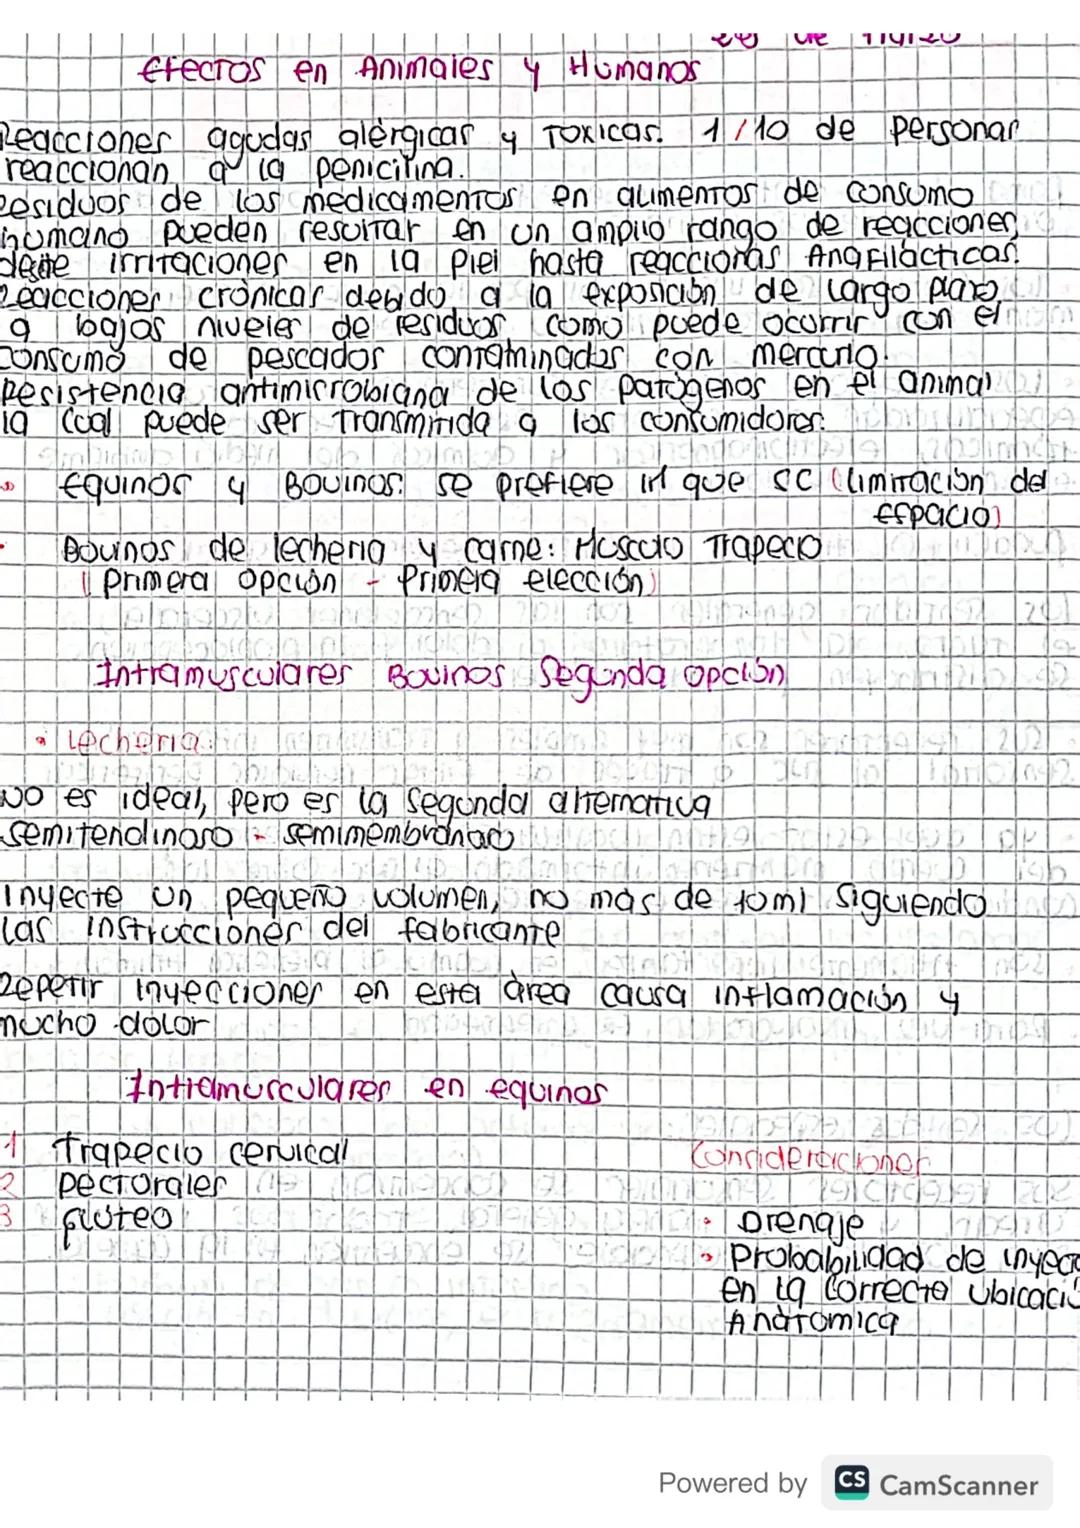 Efectos en Animales y Humanos
Reacciones agudas alérgicas y Toxicas. 1/10 de personas
reaccionan a la penicilina.
Residuos de los medicamentos en alimentos de consumo
humano pueden resultar en un amplio rango de reacciones,
desde irritaciones en la piel hasta reaccionas Anafilácticas.
Reacciones crónicas debido a la exposición de largo plazo,
a bajos niveles de residuos como puede ocurrir con el
consumo de pescados contaminados con mercurio.
Resistencia antimicrobiana de los patógenos en el animal
la cual puede ser Transmitida a los consumidores.
Equinos y Bovinos: se prefiere IM que SC (limitación del
Espacio)
Bovinos de lecheria y carne: Musculo Trapecio
(Primera opción - Primera elección)
Intramusculares Bovinos Segunda opción
• Lecheria:
NO es ideal, pero es la segunda alternativa
Semitendinoso - semimembranoso
Inyecte un pequeño volumen, no más de 10ml siguiendo
Las instrucciones del fabricante
Repetir inyecciones en esta área causa inflamación y
mucho dolor
Intramusculares en equinos
1 Trapecio cervical
2 Pectorales
3 gluteo
Consideraciones
• Drenaje
• Probabilidad de inyec
en la correcta ubicació
Anàtomica
Powered by CS CamScanner